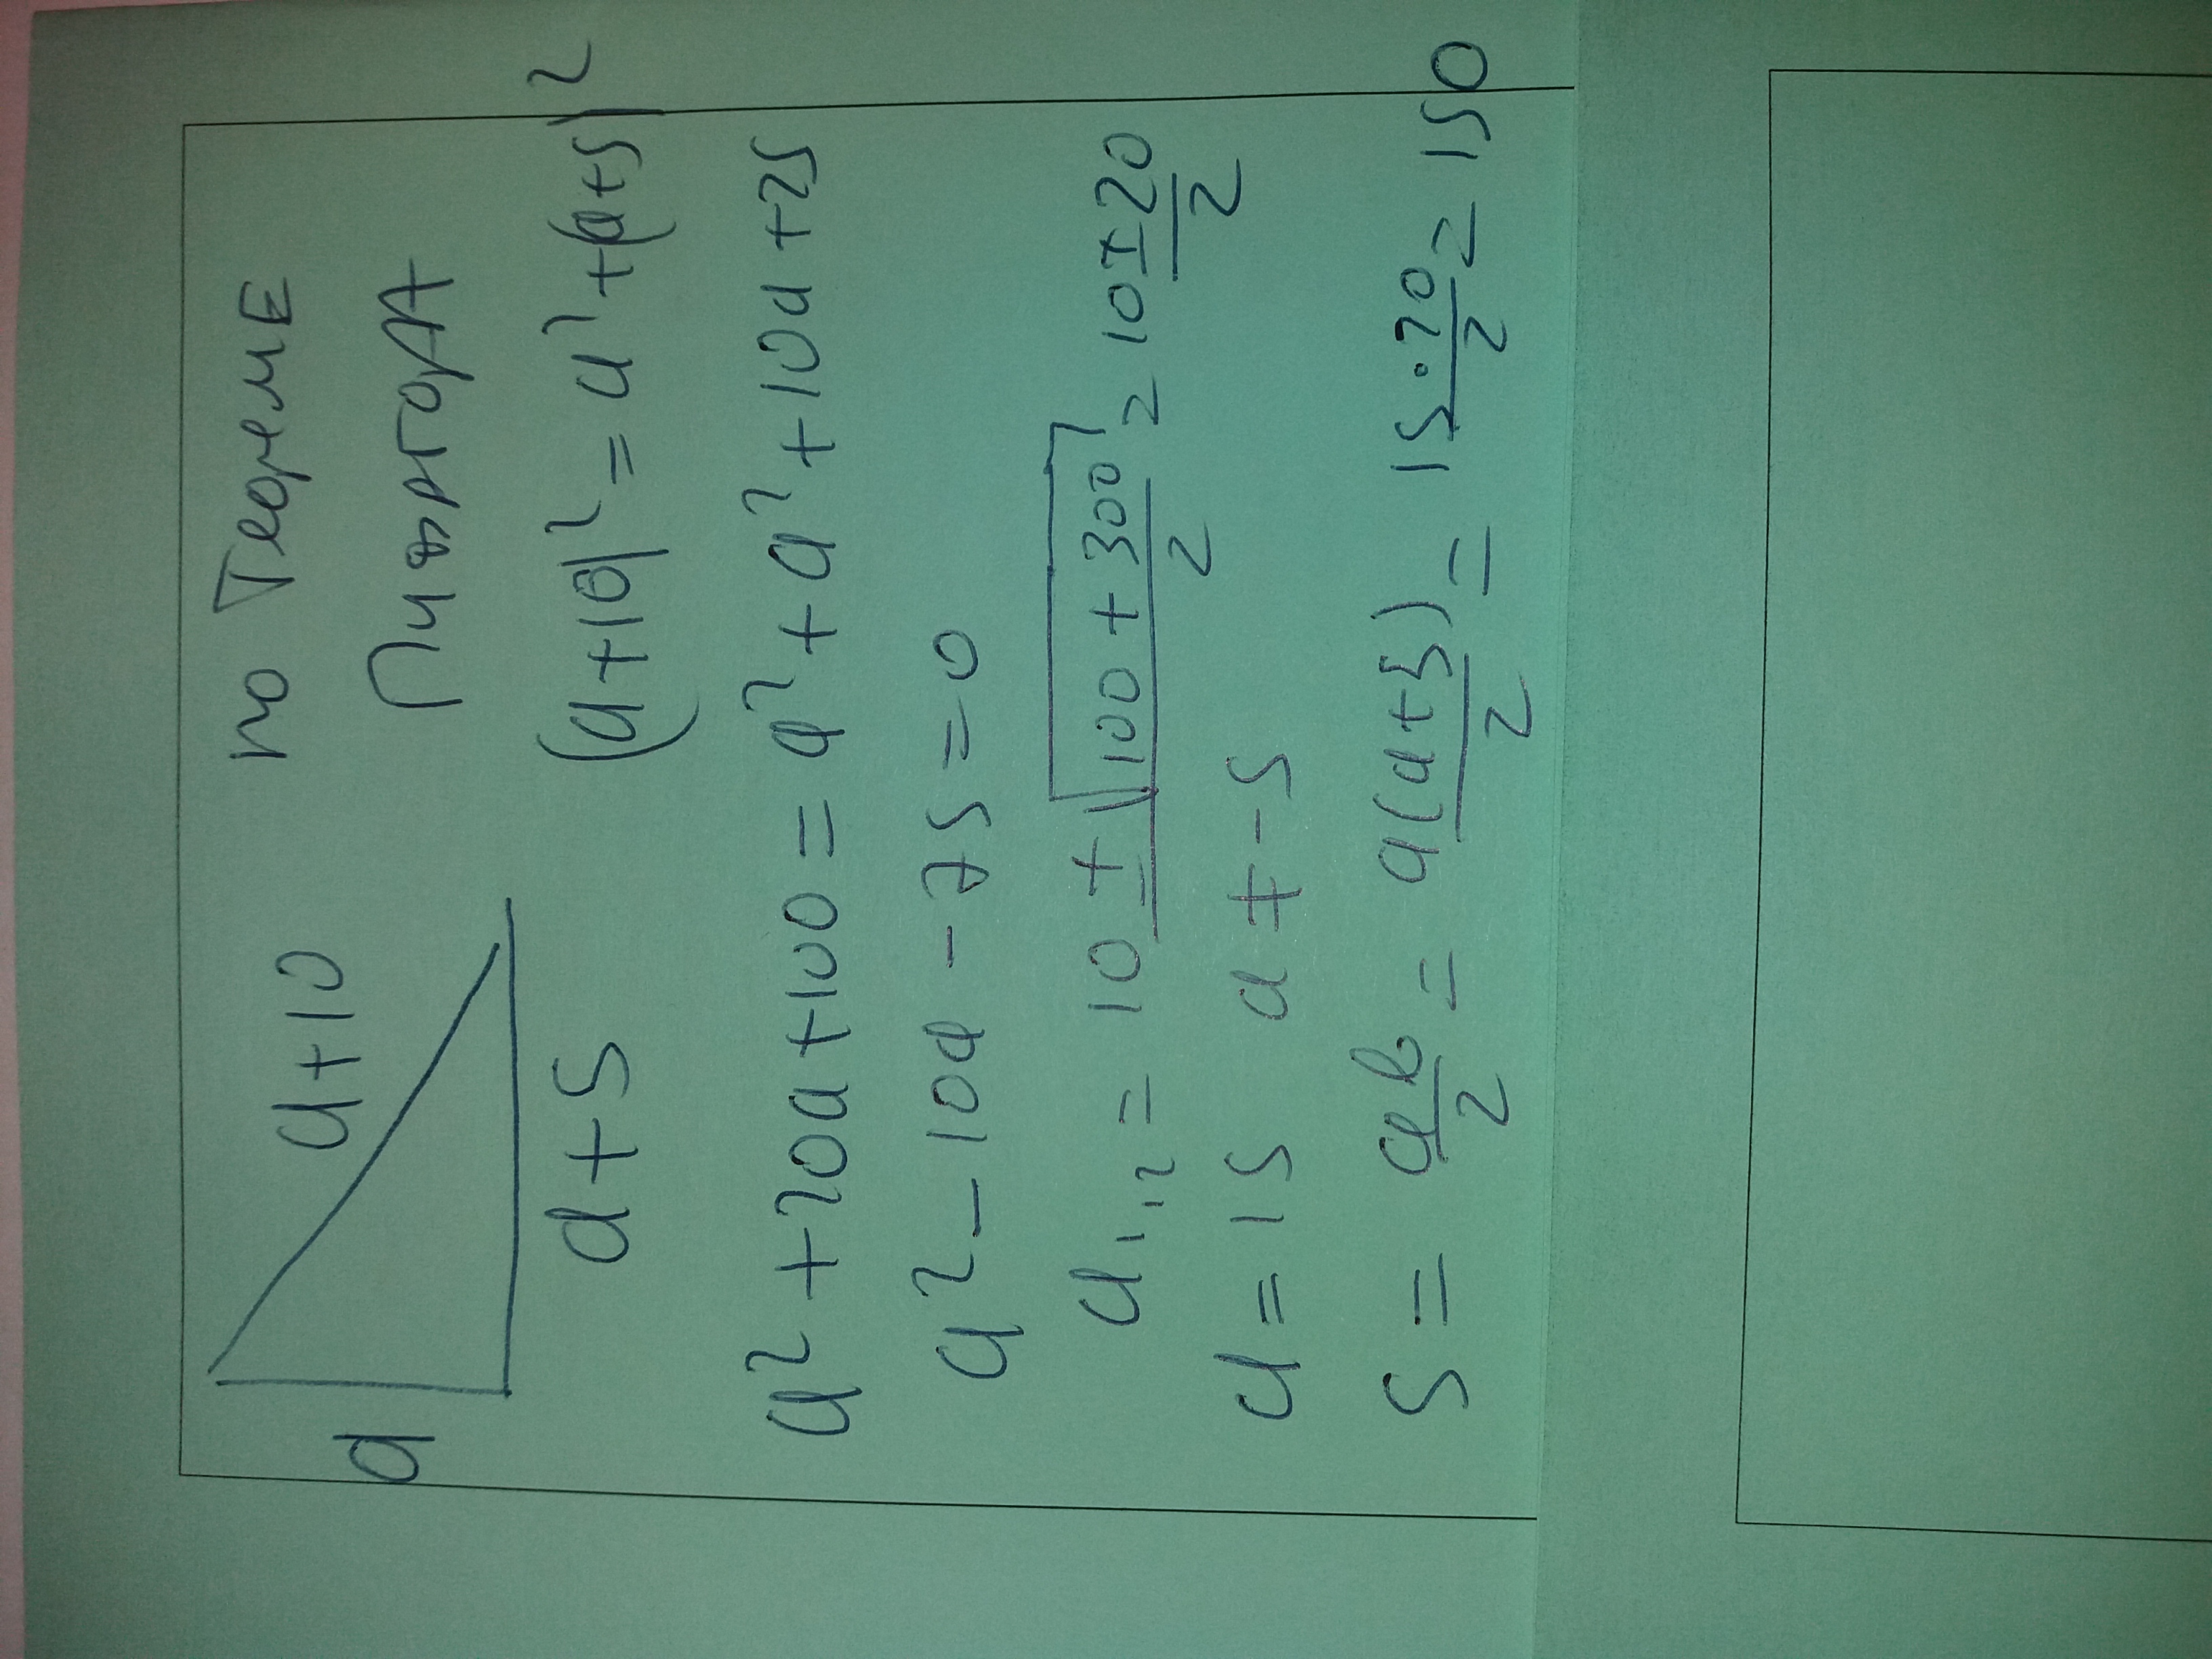 a
a+10
a+5
по Теореме
Пифагора
(a+10)² = a²+(a+5)²
a²+20a+100=a²+a²+10a+25
a²-10a-75=0
a₁,₂= 10±√100+300/2 = 10±20/2
a=15 a≠-5
S= ab/2 = a(a+5)/2 = 15·20/2=150